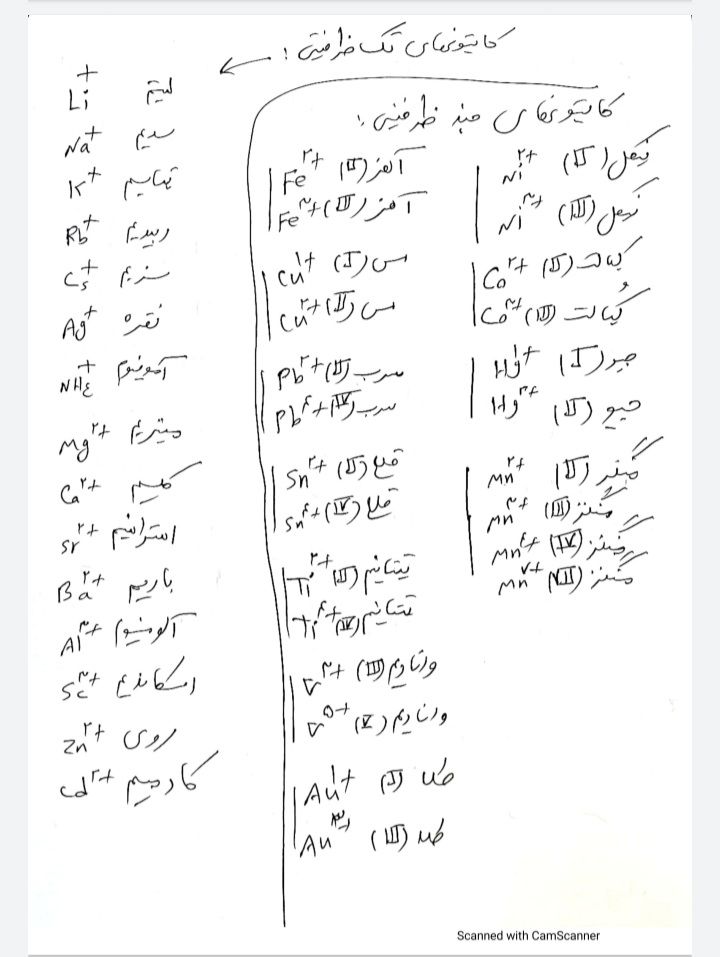 کاتیونهای تک ظرفیتی :
Li⁺ لیتیم
Na⁺ سدیم
K⁺ پتاسیم
Rb⁺ روبیدیم
Cs⁺ سزیم
Ag⁺ نقره
NH₄⁺ آمونیوم
Mg²⁺ منیزیم
Ca²⁺ کلسیم
Sr²⁺ استرانسیم
Ba²⁺ باریم
Al³⁺ آلومینیوم
Sc³⁺ اسکاندیم
Zn²⁺ روی
Cd²⁺ کادمیم
کاتیونهای چند ظرفیتی :
Fe²⁺ آهن (II)
Fe³⁺ آهن (III)
Cu¹⁺ مس (I)
Cu²⁺ مس (II)
Pb²⁺ سرب (II)
Pb⁴⁺ سرب (IV)
Sn²⁺ قلع (II)
Sn⁴⁺ قلع (IV)
Ti²⁺ تیتانیم (II)
Ti⁴⁺ تیتانیم (IV)
V³⁺ وانادیم (III)
V⁵⁺ وانادیم (V)
Au¹⁺ طلا (I)
Au³⁺ طلا (III)
Ni²⁺ نیکل (II)
Ni³⁺ نیکل (III)
Co²⁺ کبالت (II)
Co³⁺ کبالت (III)
Hg¹⁺ جیوه (I)
Hg²⁺ جیوه (II)
Mn²⁺ منگنز (II)
Mn³⁺ منگنز (III)
Mn⁴⁺ منگنز (IV)
Mn⁷⁺ منگنز (VII)
Scanned with CamScanner